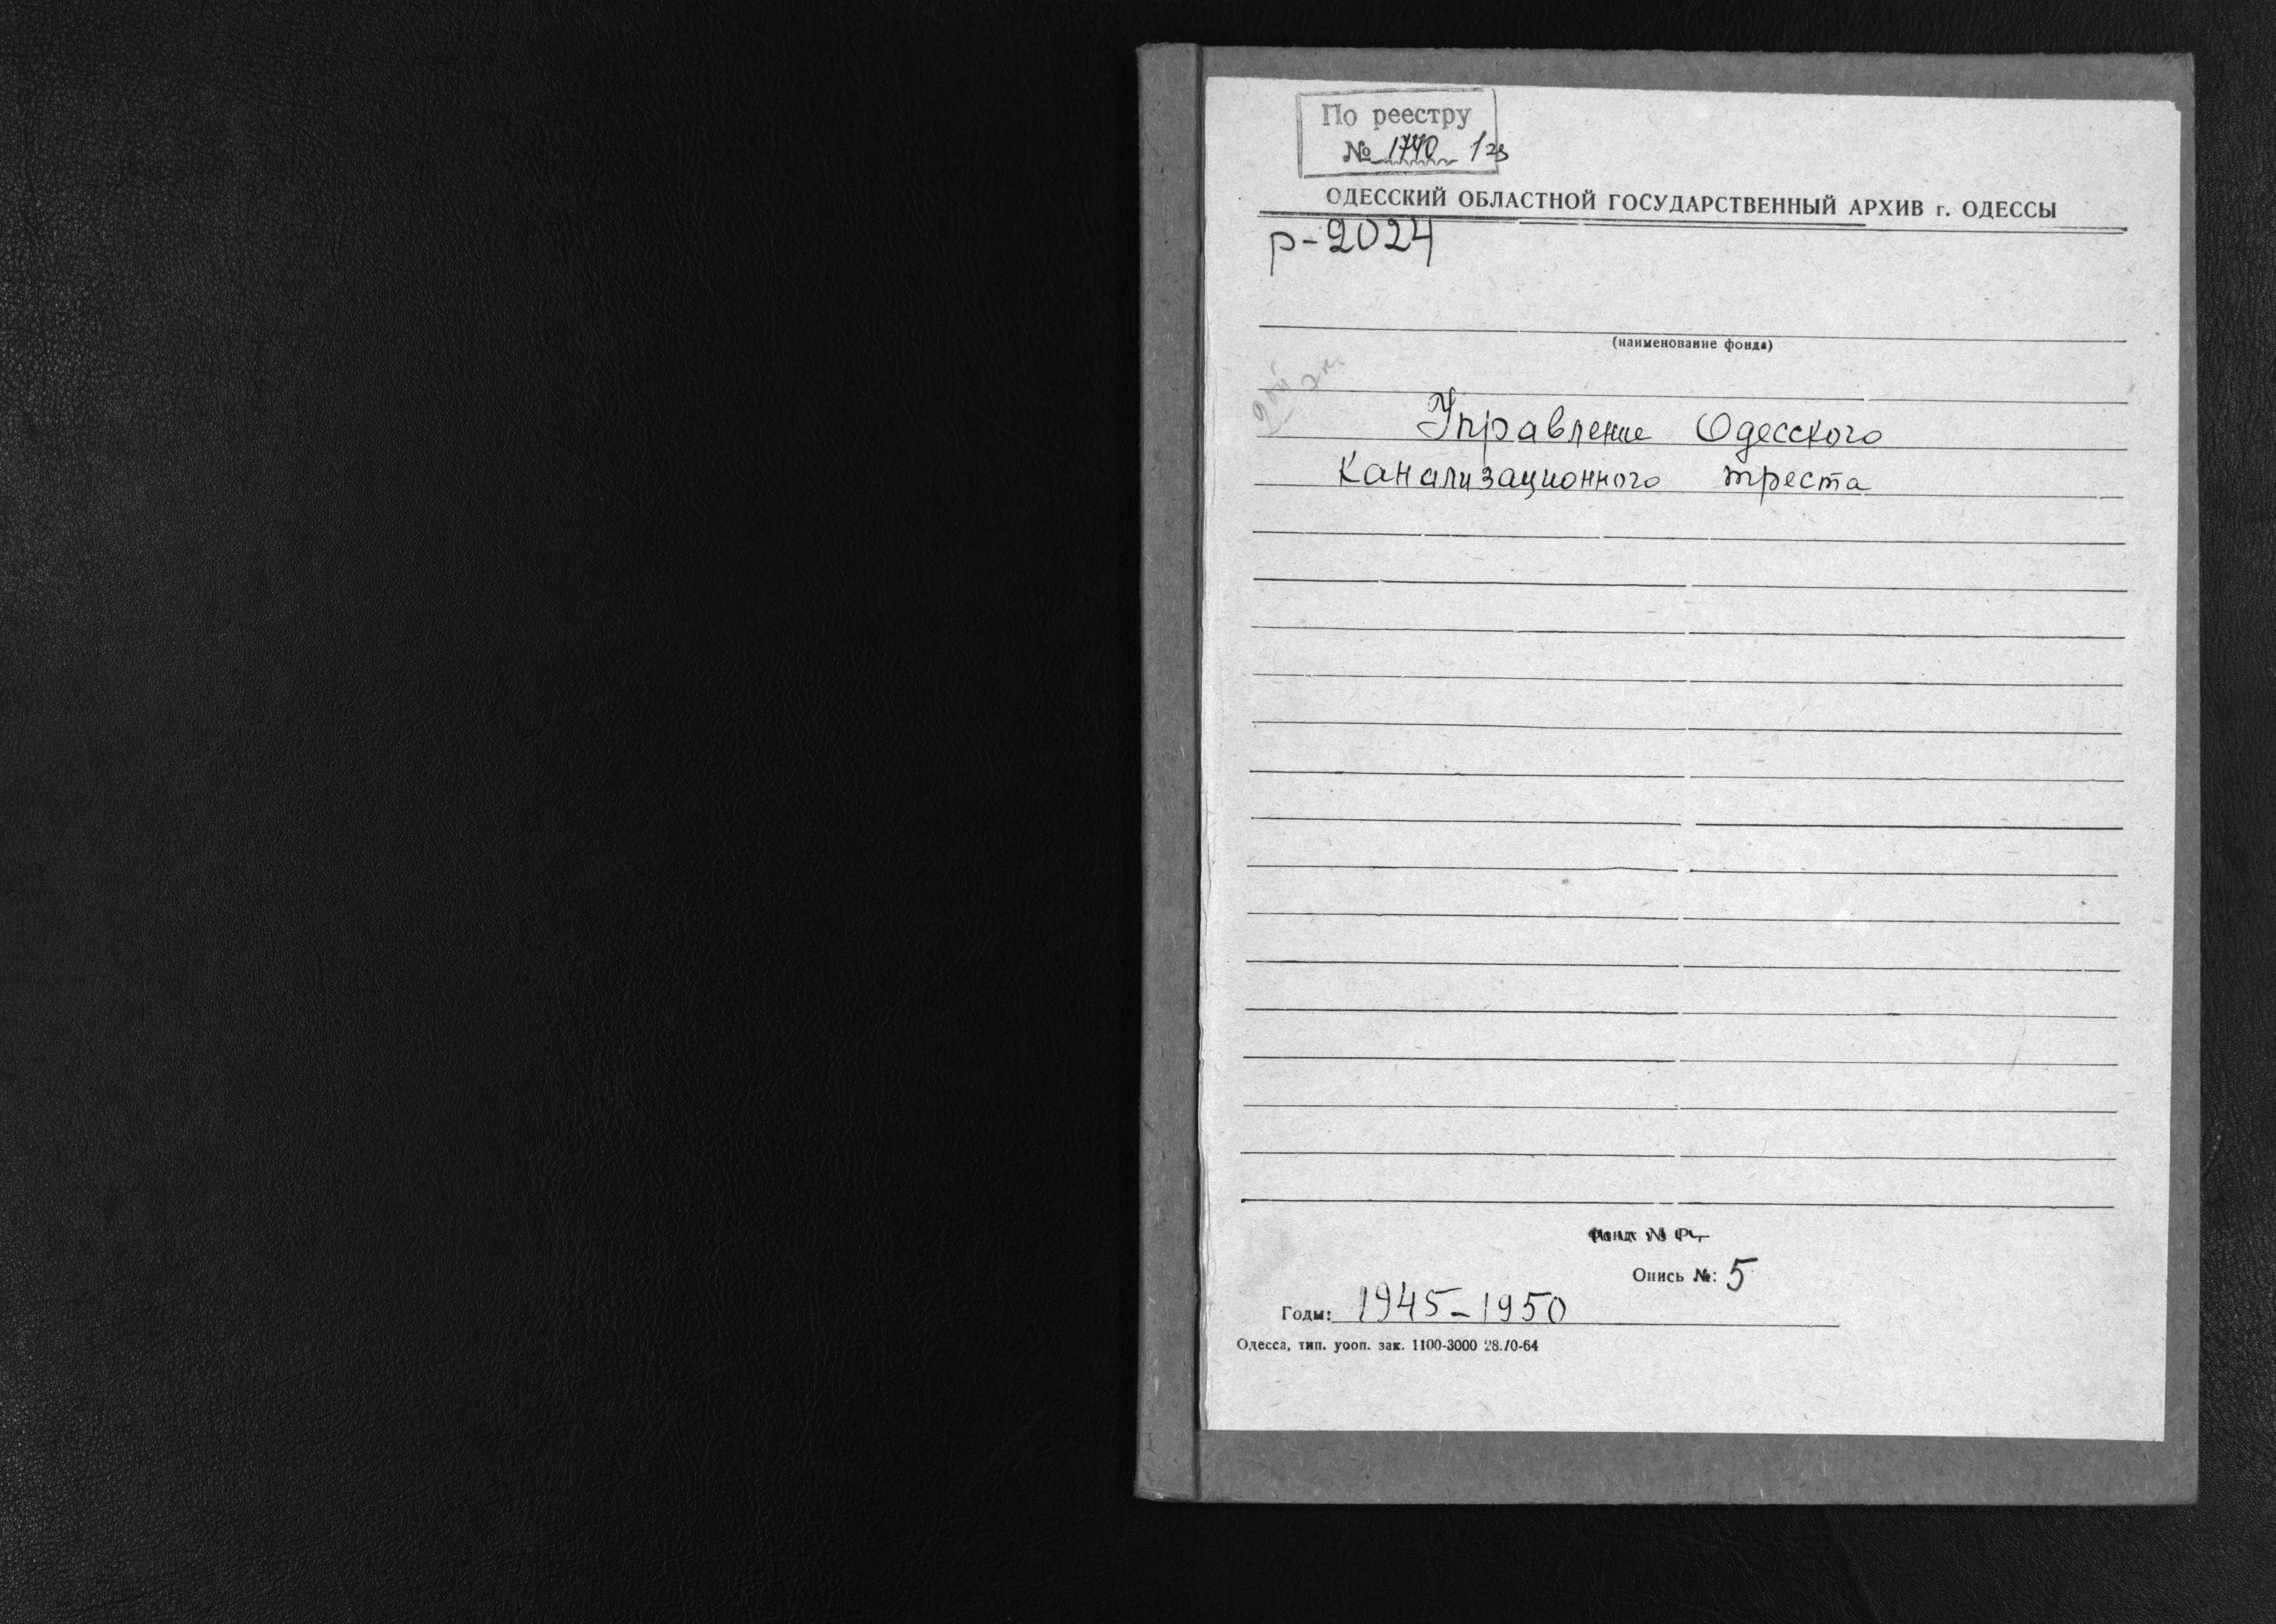 По реестру
№ 1740
ОДЕССКИЙ ОБЛАСТНОЙ ГОСУДАРСТВЕННЫЙ АРХИВ г. ОДЕССЫ
р-2024
(наименование фонда)
Управление Одесского
канализационного треста
Фонд №
Опись №: 5
Годы: 1945-1950
Одесса, тип. уооп. зак. 1100-3000 28.10-64